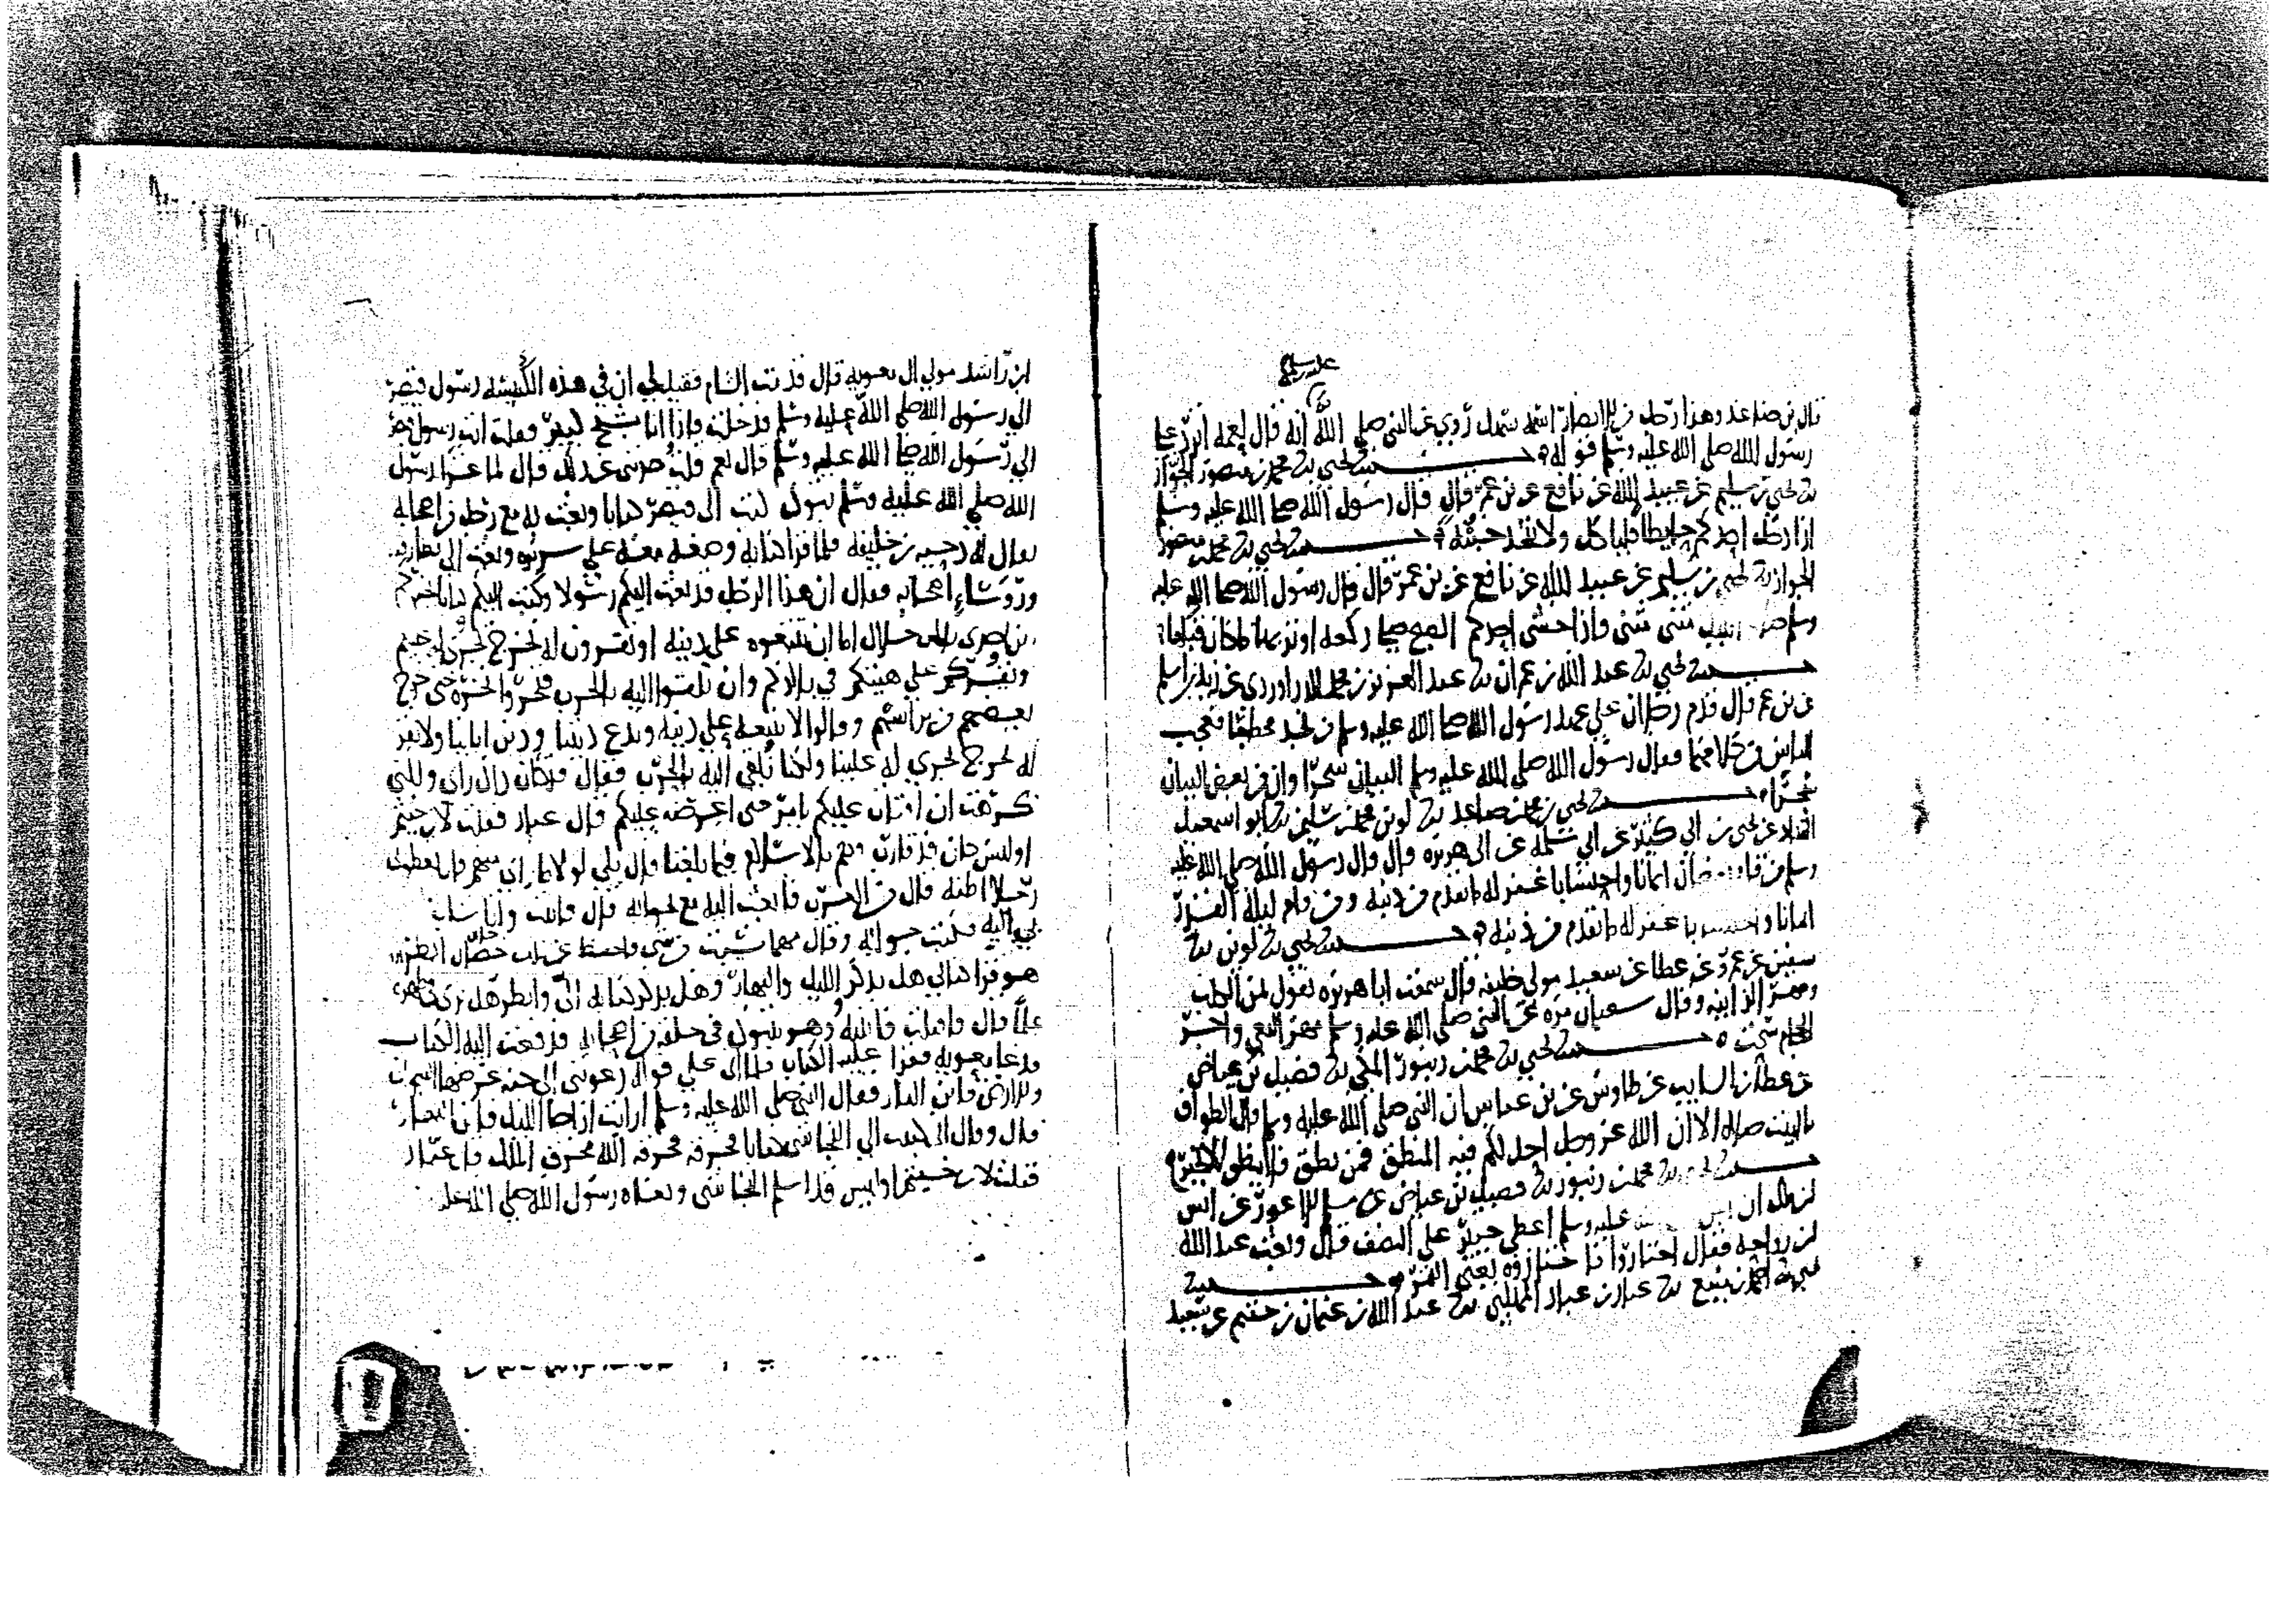 عليه وسلم
قال بن صاعد وهذا رجل من الانصار اسمه سهل روي عن النبي صلى الله انه قال لعمه ابن عم
رسول الله صلى الله عليه وسلم قوله حدثنا يحيى نا محمد بن منصور الجواز
نا يحيى بن سليم عن عبيد الله عن نافع عن بن عمر قال قال رسول الله صلى الله عليه وسلم
اذا دخل احدكم حايطا فلياكل ولا يتخذ خبنة حدثنا يحيى نا محمد بن منصور
الجواز نا يحيى بن سليم عن عبيد الله عن نافع عن بن عمر قال قال رسول الله صلى الله عليه
وسلم صلاة الليل مثنى مثنى فاذا خشي احدكم الصبح صلى ركعة اوتر بها ما كان قبلها
حدثنا يحيى نا عبد الله بن عمران نا عبد العزيز بن محمد الدراوردي عن زيد بن اسلم
عن بن عمر قال قدم رجلان على عهد رسول الله صلى الله عليه وسلم من نجد فخطبا فعجب
الناس من كلامهما فقال رسول الله صلى الله عليه وسلم ان البيان سحرا وان من بعض البيان
سحرا حدثنا يحيى بن محمد بن صاعد نا لوين محمد بن سليمن نا ابو اسمعيل
القناد عن يحيى بن ابي كثير عن ابي سلمة عن ابي هريره قال قال رسول الله صلى الله عليه
وسلم من قام رمضان ايمانا واحتسابا غفر له ما تقدم من ذنبه ومن قام ليلة القدر
ايمانا واحتسابا غفر له ما تقدم من ذنبه حدثنا يحيى نا لوين نا
سفين عن عمرو عن عطا عن سعيد مولى خليفه قال سمعت ابا هريره يقول ثمن الكلب
ومهر الزانية وقال سفيان مره عن النبي صلى الله عليه وسلم مهر البغي واجر
الحجام سحت حدثنا يحيى نا محمد بن زنبور المكي نا فضيل بن عياض
عن عطا بن السايب عن طاوس عن بن عباس ان النبي صلى الله عليه وسلم قال الطواف
بالبيت صلاه الا ان الله عز وجل احل لكم فيه المنطق فمن نطق فلا ينطق الا بخير
حدثنا يحيى نا محمد بن زنبور نا فضيل بن عياض عن مسلم الاعور عن انس
بن مالك ان النبي صلى الله عليه وسلم اعطى خيبر على النصف قال وبعث عبد الله
بن رواحه فقال اختاروا فاختاروه يعني التمر حدثنا
يحيى نا احمد بن منيع نا عباد بن عباد المهلبي نا عبد الله بن عثمان بن خثيم عن سعيد
ابن راشد مولى ال معويه قال قدمت الشام فقيل لي ان في هذه الكنيسه رسول قيصر
الى رسول الله صلى الله عليه وسلم فدخلت فاذا انا بشيخ كبير فقلت انت رسول قيصر
الى رسول الله صلى الله عليه وسلم قال نعم قلت حدثني عن ذلك قال لما غزا رسول
الله صلى الله عليه وسلم تبوك كتب الى قيصر كتابا وبعث به مع رجل من اصحابه
يقال له دحيه بن خليفه فلما قرا كتابه وضعه معه على سريره وبعث الى بطارقته
ورؤساء اصحابه فقال ان هذا الرجل قد بعث اليكم رسولا وكتب اليكم كتابا يخيركم
من احدى ثلاث خلال اما ان تتبعوه على دينه او تقرون له بخرج يجري له عليكم
ويقركم على هيئتكم في بلادكم وان تلقوا اليه بالحرب فنخروا نخره حتى خرج
بعضهم من برانسهم وقالوا لا نتبعه على دينه وندع ديننا ودين ابائنا ولا نقر
له بخرج يجري له علينا ولكنا نلقي اليه بالحرب فقال قد كان ذاك راي ولكني
كرهت ان افتات عليكم بامر حتى اعرضه عليكم قال عباد فقلت لابن خثيم
اوليس كان قد قارب وهم بالاسلام فيما بلغنا قال بلى لولا ما راى منهم قال
رجلا
بي اليه فكتب جوابه وقال مهما نسيت من شي فاحفظ عني ثلاث خصال انظر
هو قرا كتابي هل يذكر الليل والنهار وهل يذكر كتابه الي وانظر هل ترى في ظهره
علما قال فاقبلت فاتيته وهو بتبوك في حلقه من اصحابه فدفعت اليه الكتاب
فدعا معويه فقرا عليه الكتاب فلما اتى على قوله دعوتني الى جنه عرضها السموات
والارض فاين النار فقال النبي صلى الله عليه وسلم ارايت اذا جا الليل فاين النهار
قال وقال اني كتبت الى النجاشي كتابا فخرقه فخرقه الله مخرق الملك قال عباد
فقلت لابن خثيم اوليس قد اسلم النجاشي ونعاه رسول الله صلى الله عليه